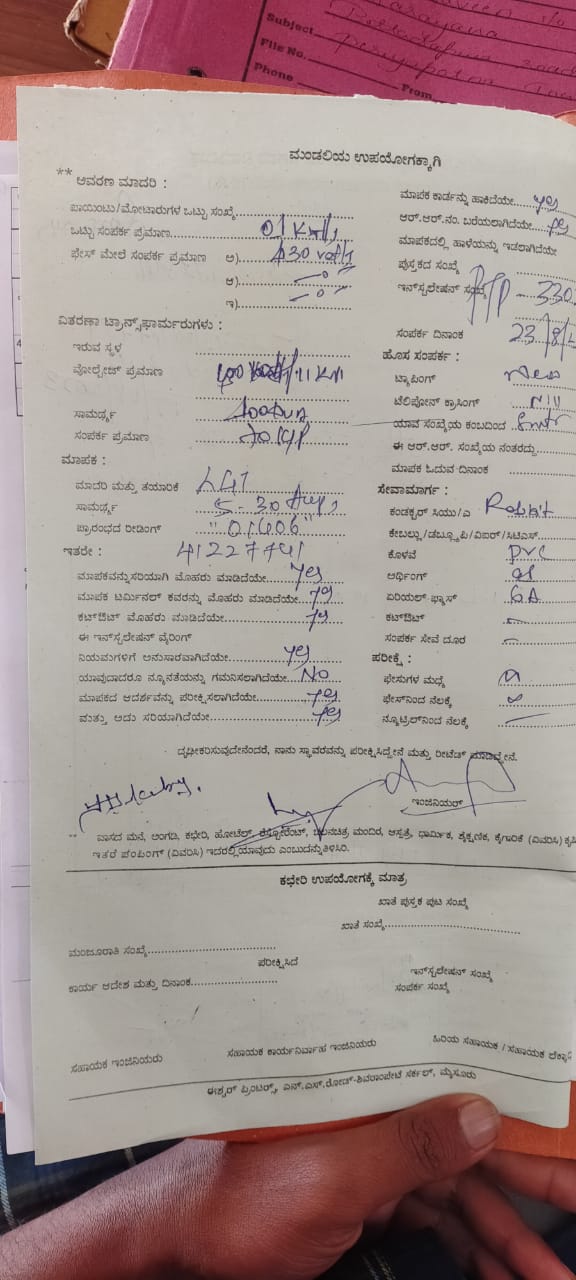 Subject
File No.
Phone
From
ಮಂಡಲಿಯ ಉಪಯೋಗಕ್ಕಾಗಿ
** ಆವರಣ ಮಾದರಿ :
ಪಾಯಿಂಟು/ಮೋಟಾರುಗಳ ಒಟ್ಟು ಸಂಖ್ಯೆ
ಒಟ್ಟು ಸಂಪರ್ಕ ಪ್ರಮಾಣ 01
ಫೇಸ್ ಮೇಲೆ ಸಂಪರ್ಕ ಪ್ರಮಾಣ ಅ)
ಆ) —0—
ಇ) —0—
ವಿತರಣಾ ಟ್ರಾನ್ಸ್‌ಫಾರ್ಮರುಗಳು :
ಇರುವ ಸ್ಥಳ
ವೋಲ್ಟೇಜ್ ಪ್ರಮಾಣ
ಸಾಮರ್ಥ್ಯ
ಸಂಪರ್ಕ ಪ್ರಮಾಣ
ಮಾಪಕ :
ಮಾದರಿ ಮತ್ತು ತಯಾರಿಕೆ L&T
ಸಾಮರ್ಥ್ಯ 5-30 Amp
ಪ್ರಾರಂಭದ ರೀಡಿಂಗ್ "01606"
ಇತರೇ : 41227741
ಮಾಪಕವನ್ನು ಸರಿಯಾಗಿ ಮೊಹರು ಮಾಡಿದೆಯೇ yes
ಮಾಪಕ ಟರ್ಮಿನಲ್ ಕವರನ್ನು ಮೊಹರು ಮಾಡಿದೆಯೇ yes
ಕಟ್‌ಔಟ್ ಮೊಹರು ಮಾಡಿದೆಯೇ yes
ಈ ಇನ್‌ಸ್ಟಲೇಷನ್ ವೈರಿಂಗ್
ನಿಯಮಗಳಿಗೆ ಅನುಸಾರವಾಗಿದೆಯೇ yes
ಯಾವುದಾದರೂ ನ್ಯೂನತೆಯನ್ನು ಗಮನಿಸಲಾಗಿದೆಯೇ No
ಮಾಪಕದ ಆದರ್ಶವನ್ನು ಪರೀಕ್ಷಿಸಲಾಗಿದೆಯೇ yes
ಮತ್ತು ಅದು ಸರಿಯಾಗಿದೆಯೇ yes
ಮಾಪಕ ಕಾರ್ಡನ್ನು ಹಾಕಿದೆಯೇ yes
ಆರ್.ಆರ್.ನಂ. ಬರೆಯಲಾಗಿದೆಯೇ yes
ಮಾಪಕದಲ್ಲಿ ಹಾಳೆಯನ್ನು ಇಡಲಾಗಿದೆಯೇ
ಪುಸ್ತಕದ ಸಂಖ್ಯೆ
ಇನ್‌ಸ್ಟಲೇಷನ್ ಸಂಖ್ಯೆ
ಸಂಪರ್ಕ ದಿನಾಂಕ 23/8/
ಹೊಸ ಸಂಪರ್ಕ :
ಟ್ಯಾಪಿಂಗ್ New
ಟೆಲಿಫೋನ್ ಕ್ರಾಸಿಂಗ್ Nil
ಯಾವ ಸಂಖ್ಯೆಯ ಕಂಬದಿಂದ
ಈ ಆರ್.ಆರ್. ಸಂಖ್ಯೆಯ ನಂತರದ್ದು
ಮಾಪಕ ಓದುವ ದಿನಾಂಕ
ಸೇವಾಮಾರ್ಗ :
ಕಂಡಕ್ಟರ್ ಸಿಯು/ಎ Rabbit
ಕೇಬಲ್ಲು/ಡಬ್ಲ್ಯೂಪಿ/ವಿಐಆರ್/ಸಿಟಿಎಸ್
ಕೊಳವೆ PVC
ಅರ್ಥಿಂಗ್ GI
ಏರಿಯಲ್ ಫ್ಯೂಸ್ 6A
ಕಟ್‌ಔಟ್ —
ಸಂಪರ್ಕ ಸೇವೆ ದೂರ —
ಪರೀಕ್ಷೆ :
ಫೇಸುಗಳ ಮಧ್ಯೆ
ಫೇಸ್‌ನಿಂದ ನೆಲಕ್ಕೆ ∞
ನ್ಯೂಟ್ರಲ್‌ನಿಂದ ನೆಲಕ್ಕೆ —
ದೃಢೀಕರಿಸುವುದೇನೆಂದರೆ, ನಾನು ಸ್ಥಾವರವನ್ನು ಪರೀಕ್ಷಿಸಿದ್ದೇನೆ ಮತ್ತು ರೀಟೆಡ್ ಮಾಡಿದ್ದೇನೆ.
ಇಂಜಿನಿಯರ್
** ವಾಸದ ಮನೆ, ಅಂಗಡಿ, ಕಛೇರಿ, ಹೋಟೆಲ್, ರೆಸ್ಟೋರೆಂಟ್, ಚಲನಚಿತ್ರ ಮಂದಿರ, ಆಸ್ಪತ್ರೆ, ಧಾರ್ಮಿಕ, ಶೈಕ್ಷಣಿಕ, ಕೈಗಾರಿಕೆ (ವಿವರಿಸಿ)
ಇತರೆ ಪಂಪಿಂಗ್ (ವಿವರಿಸಿ) ಇದರಲ್ಲಿ ಯಾವುದು ಎಂಬುದನ್ನು ತಿಳಿಸಿರಿ.
ಕಛೇರಿ ಉಪಯೋಗಕ್ಕೆ ಮಾತ್ರ
ಖಾತೆ ಪುಸ್ತಕ ಪುಟ ಸಂಖ್ಯೆ
ಖಾತೆ ಸಂಖ್ಯೆ
ಮಂಜೂರಾತಿ ಸಂಖ್ಯೆ
ಪರೀಕ್ಷಿಸಿದೆ
ಕಾರ್ಯ ಆದೇಶ ಮತ್ತು ದಿನಾಂಕ
ಇನ್‌ಸ್ಟಲೇಷನ್ ಸಂಖ್ಯೆ
ಸಂಪರ್ಕ ಸಂಖ್ಯೆ
ಸಹಾಯಕ ಇಂಜಿನಿಯರು ಸಹಾಯಕ ಕಾರ್ಯನಿರ್ವಾಹ ಇಂಜಿನಿಯರು ಹಿರಿಯ ಸಹಾಯಕ / ಸಹಾಯಕ
ಈಶ್ವರ್ ಪ್ರಿಂಟರ್ಸ್, ಎನ್.ಎಸ್.ರೋಡ್-ಶಿವರಾಂಪೇಟೆ ಸರ್ಕಲ್, ಮೈಸೂರು